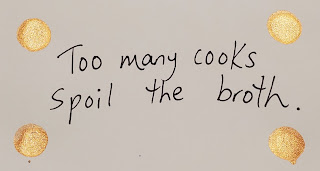 Too many cooks
spoil the broth.